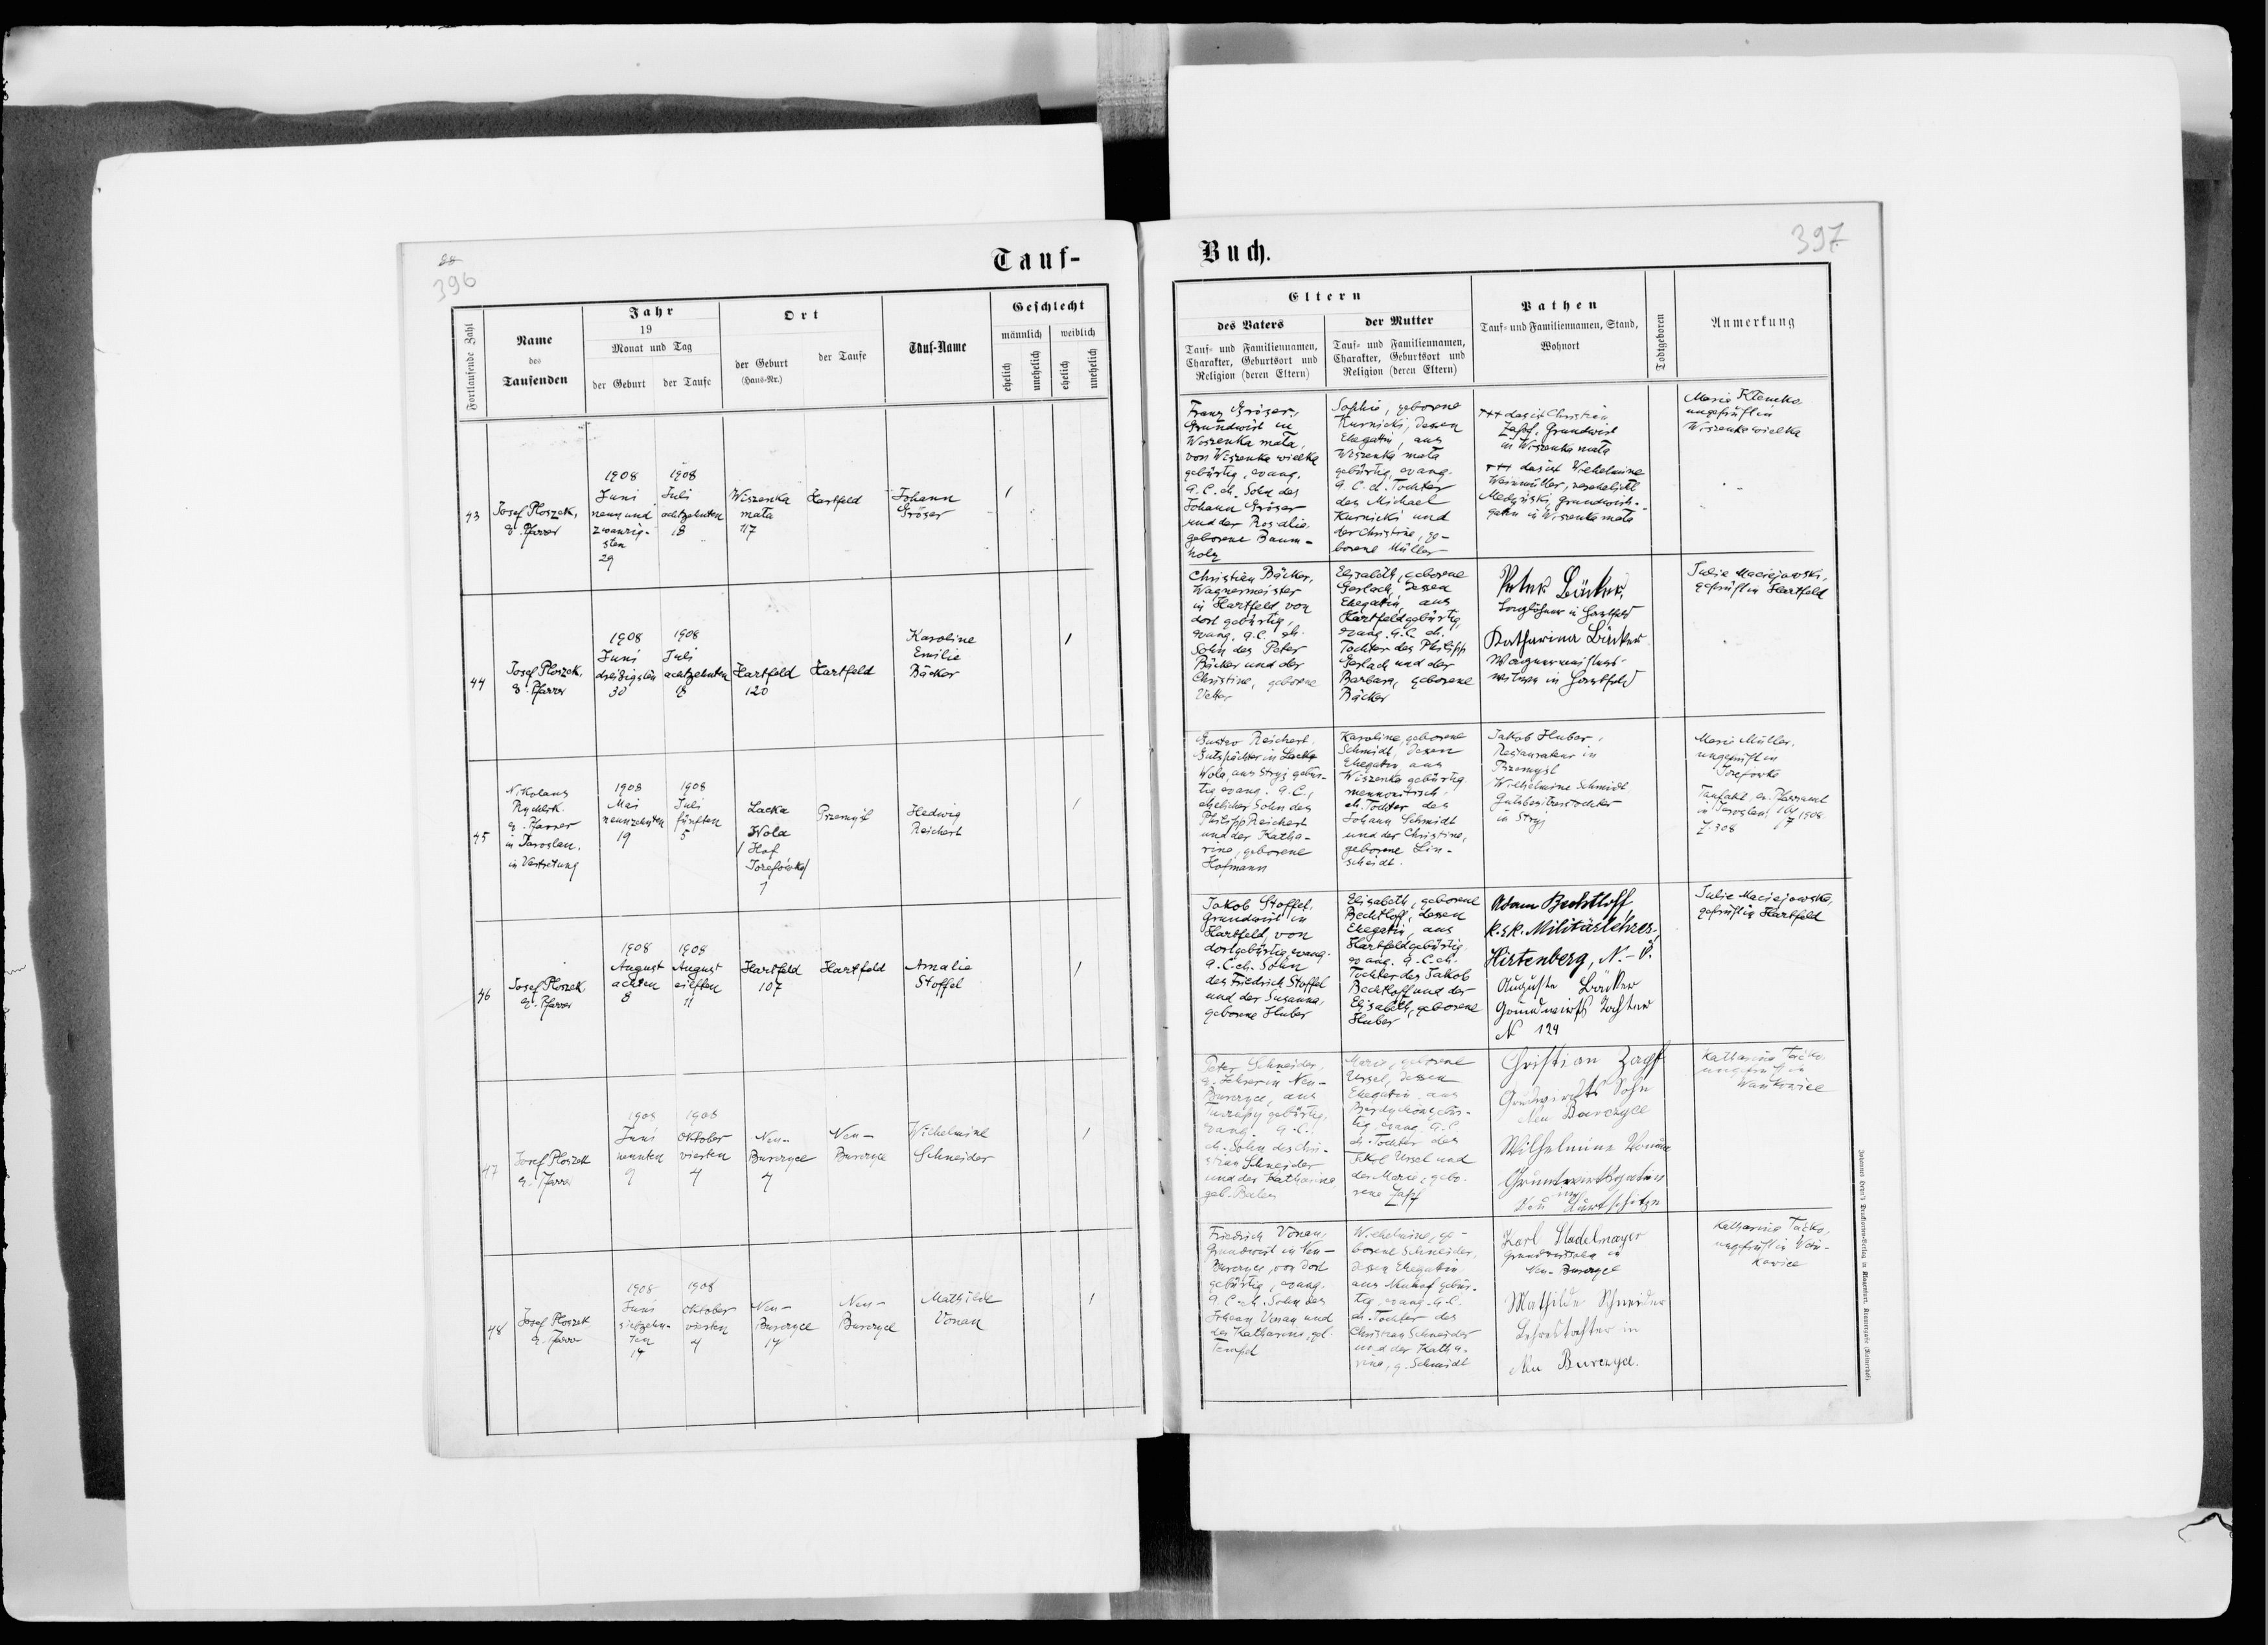 396
Tauf-
Fortlaufende Zahl
Name
des
Taufenden
Jahr
19
Monat und Tag
der Geburt
der Taufe
Ort
der Geburt
(Haus-Nr.)
der Taufe
Tauf-Name
Geschlecht
männlich
weiblich
ehelich
unehelich
ehelich
unehelich
43
Josef Ploszek,
e. Pfarrer
1908
Juni
neunund
zwanzig-
sten
29
1908
Juli
achtzehnten
18
Wiszenka
mała
117
Hartfeld
Johann
Gröser
44
Josef Ploszek,
e. Pfarrer
1908
Juni
dreißigsten
30
1908
Juli
achtzehnten
18
Hartfeld
120
Hartfeld
Karoline
Emilie
Bäcker
45
Nikolaus
e. Pfarrer
in Jaroslau,
in Vertretung
1908
Mai
neunzehnten
19
1908
Juli
fünften
5
Lacka
Wola
/Hof
Józefówka/
1
Przemyśl
Hedwig
Reichert
46
Josef Ploszek
e. Pfarrer
1908
August
achten
8
1908
August
eilften
11
Hartfeld
107
Hartfeld
Amalie
Stoffel
47
Josef Ploszek
e. Pfarrer
1908
Juni
neunten
9
1908
Oktober
vierten
4
Neu-
Burczyce
4
Neu-
Burczyce
Wilhelmine
Schneider
48
Josef Ploszek
e. Pfarrer
1908
Juni
1908
Oktober
vierten
4
Neu-
Burczyce
14
Neu-
Burczyce
Mathilde
Vonau
Buch.
397
Eltern
des Vaters
Tauf- und Familiennamen,
Charakter, Geburtsort und
Religion (deren Eltern)
der Mutter
Tauf- und Familiennamen,
Charakter, Geburtsort und
Religion (deren Eltern)
Pathen
Tauf- und Familiennamen, Stand,
Wohnort
Todtgeboren
Anmerkung
Franz Gröser,
Grundwirt in
Wiszenka mała,
von Wiszenka wielka
gebürtig, evang.
A.C. eh. Sohn des
Johann Gröser
und der Rosalie
geborene Baum-
holz
Sophie, geborene
Kurnicki, dessen
Ehegatin, aus
Wiszenka mała
gebürtig, evang.
A.C. eh. Tochter
des Michael
Kurnicki und
der Christine, ge-
borene Müller
+++ das ist Christian
Grundwirt
in Wiszenka mała
+++ das ist Wilhelmine
Weinmüller, verehelichte
Grundwirts-
gatin in Wiszenka mała
Marie Klemke
ungeprüft in
Wiszenka wielka
Christian Bäcker,
Wagnermeister
in Hartfeld von
dort gebürtig,
evang. A.C. eh.
Sohn des Peter
Bäcker und der
Christine, geborene
Vetter
Elisabeth, geborene
Gerlach, dessen
Ehegatin, aus
Hartfeld gebürtig,
evang. A.C. eh.
Tochter des Philipp
Gerlach und der
Barbara, geborene
Bäcker
Peter Bäcker,
Taglöhner in Hartfeld
Katharina Bäcker
Wagnermeisters-
witwe in Hartfeld
Julie Maciejowski,
geprüft in Hartfeld
Gustav Reichert,
Gutspächter in Lacka
Wola, aus Stryj gebür-
tig evang. A.C.,
ehelicher Sohn des
Philipp Reichert
und der Katha-
rine, geborene
Hofmann
Karoline, geborene
Schmidt, dessen
Ehegatin, aus
Wiszenka gebürtig
mennonitisch,
eh. Tochter des
Johann Schmidt
und der Christine,
geborene Lin-
scheidt.
Jakob Huber,
Restaurateur in
Przemyśl
Wilhelmine Schmidt
Gutsbesitzerstochter
in Stryj
Marie Müller,
ungeprüft in
Józefówka
Taufakt, ev. Pfarramt
in Jaroslau
Z. 308
Jakob Stoffel,
Grundwirt in
Hartfeld, von
dort gebürtig, evang.
A.C. eh. Sohn
des Friedrich Stoffel
und der Susanna,
geborene Huber
Elisabeth, geborene
Bechtloff, dessen
Ehegatin, aus
Hartfeld gebürtig,
evang. A.C. eh.
Tochter des Jakob
Bechtloff und der
Elisabeth, geborene
Huber
Adam Bechtloff
k. u. k. Militärlehrer,
Hirtenberg, N.-Ö.
Auguste Bäcker
Grundwirts Tochter
N 124
Julie Maciejowska,
geprüft in Hartfeld
Peter Schneider,
e. Lehrer in Neu-
Burczyce, aus
gebürtig,
evang. A.C.,
eh. Sohn des Chri-
stian Schneider
und der Katharine,
geb.
Marie, geborene
Ursel, dessen
Ehegatin, aus
tig, evang. A.C.
eh. Tochter des
Ursel und
der Marie, gebo-
rene Zapf
Christian Zapf
Grundwirts Sohn
Neu Burczyce
Wilhelmine Vonau
Grundwirtsgatin
in
Katharina
ungeprüft in
Friedrich Vonau,
Grundwirt in Neu-
Burczyce, von dort
gebürtig, evang.
A.C. eh. Sohn des
Johann Vonau und
der Katharina, geb.
Tempel
Wilhelmine, ge-
borene Schneider,
dessen Ehegatin
aus Neuhof gebür-
tig, evang. A.C.
eh. Tochter des
Christian Schneider
und der Katha-
rina, g. Schmidt
Karl Stadelmayer
Grundwirtssohn in
Neu-Burczyce
Mathilde Schneider
Lehrerstochter in
Neu Burczyce.
Katharina
ungeprüft in